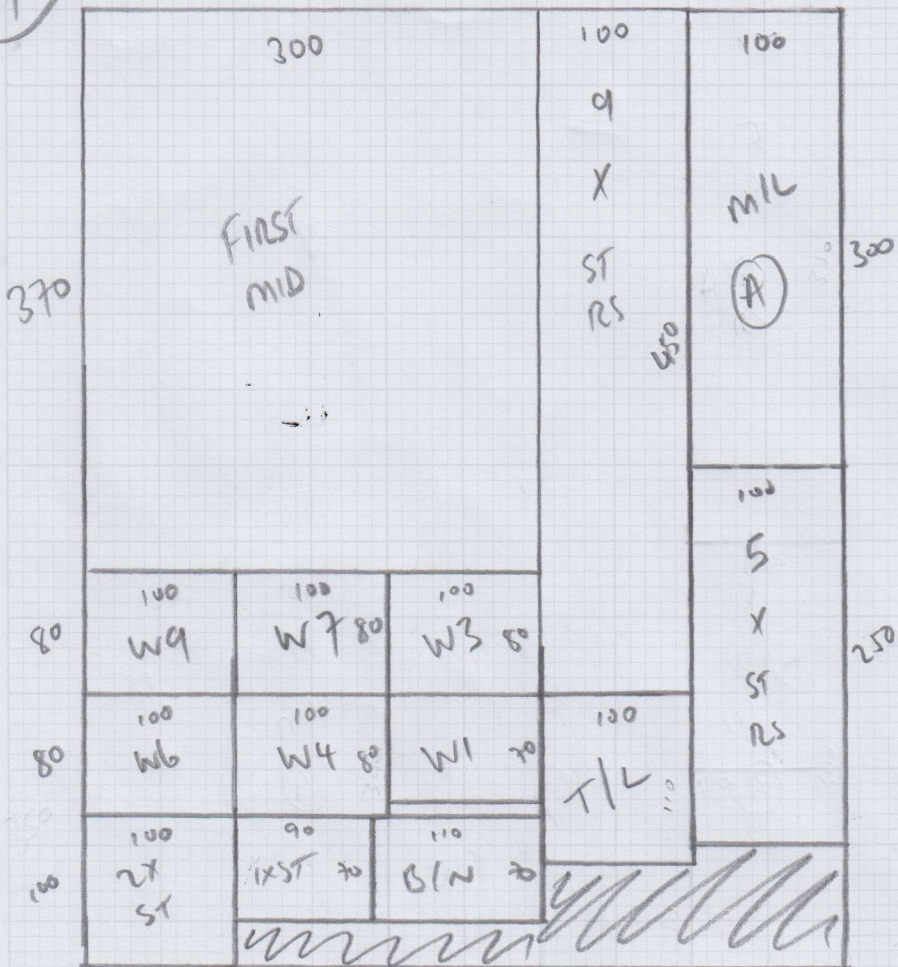 1
300
100
100
FIRST
MID
9
X
ST
RS
450
M/L
A
300
370
100
5
X
ST
RS
250
80
100
W9
100
W7 80
100
W3 80
80
100
W6
100
W4 80
W1 70
100
T/L 110
100
100
2X
ST
90
1XST 70
110
B/N 70